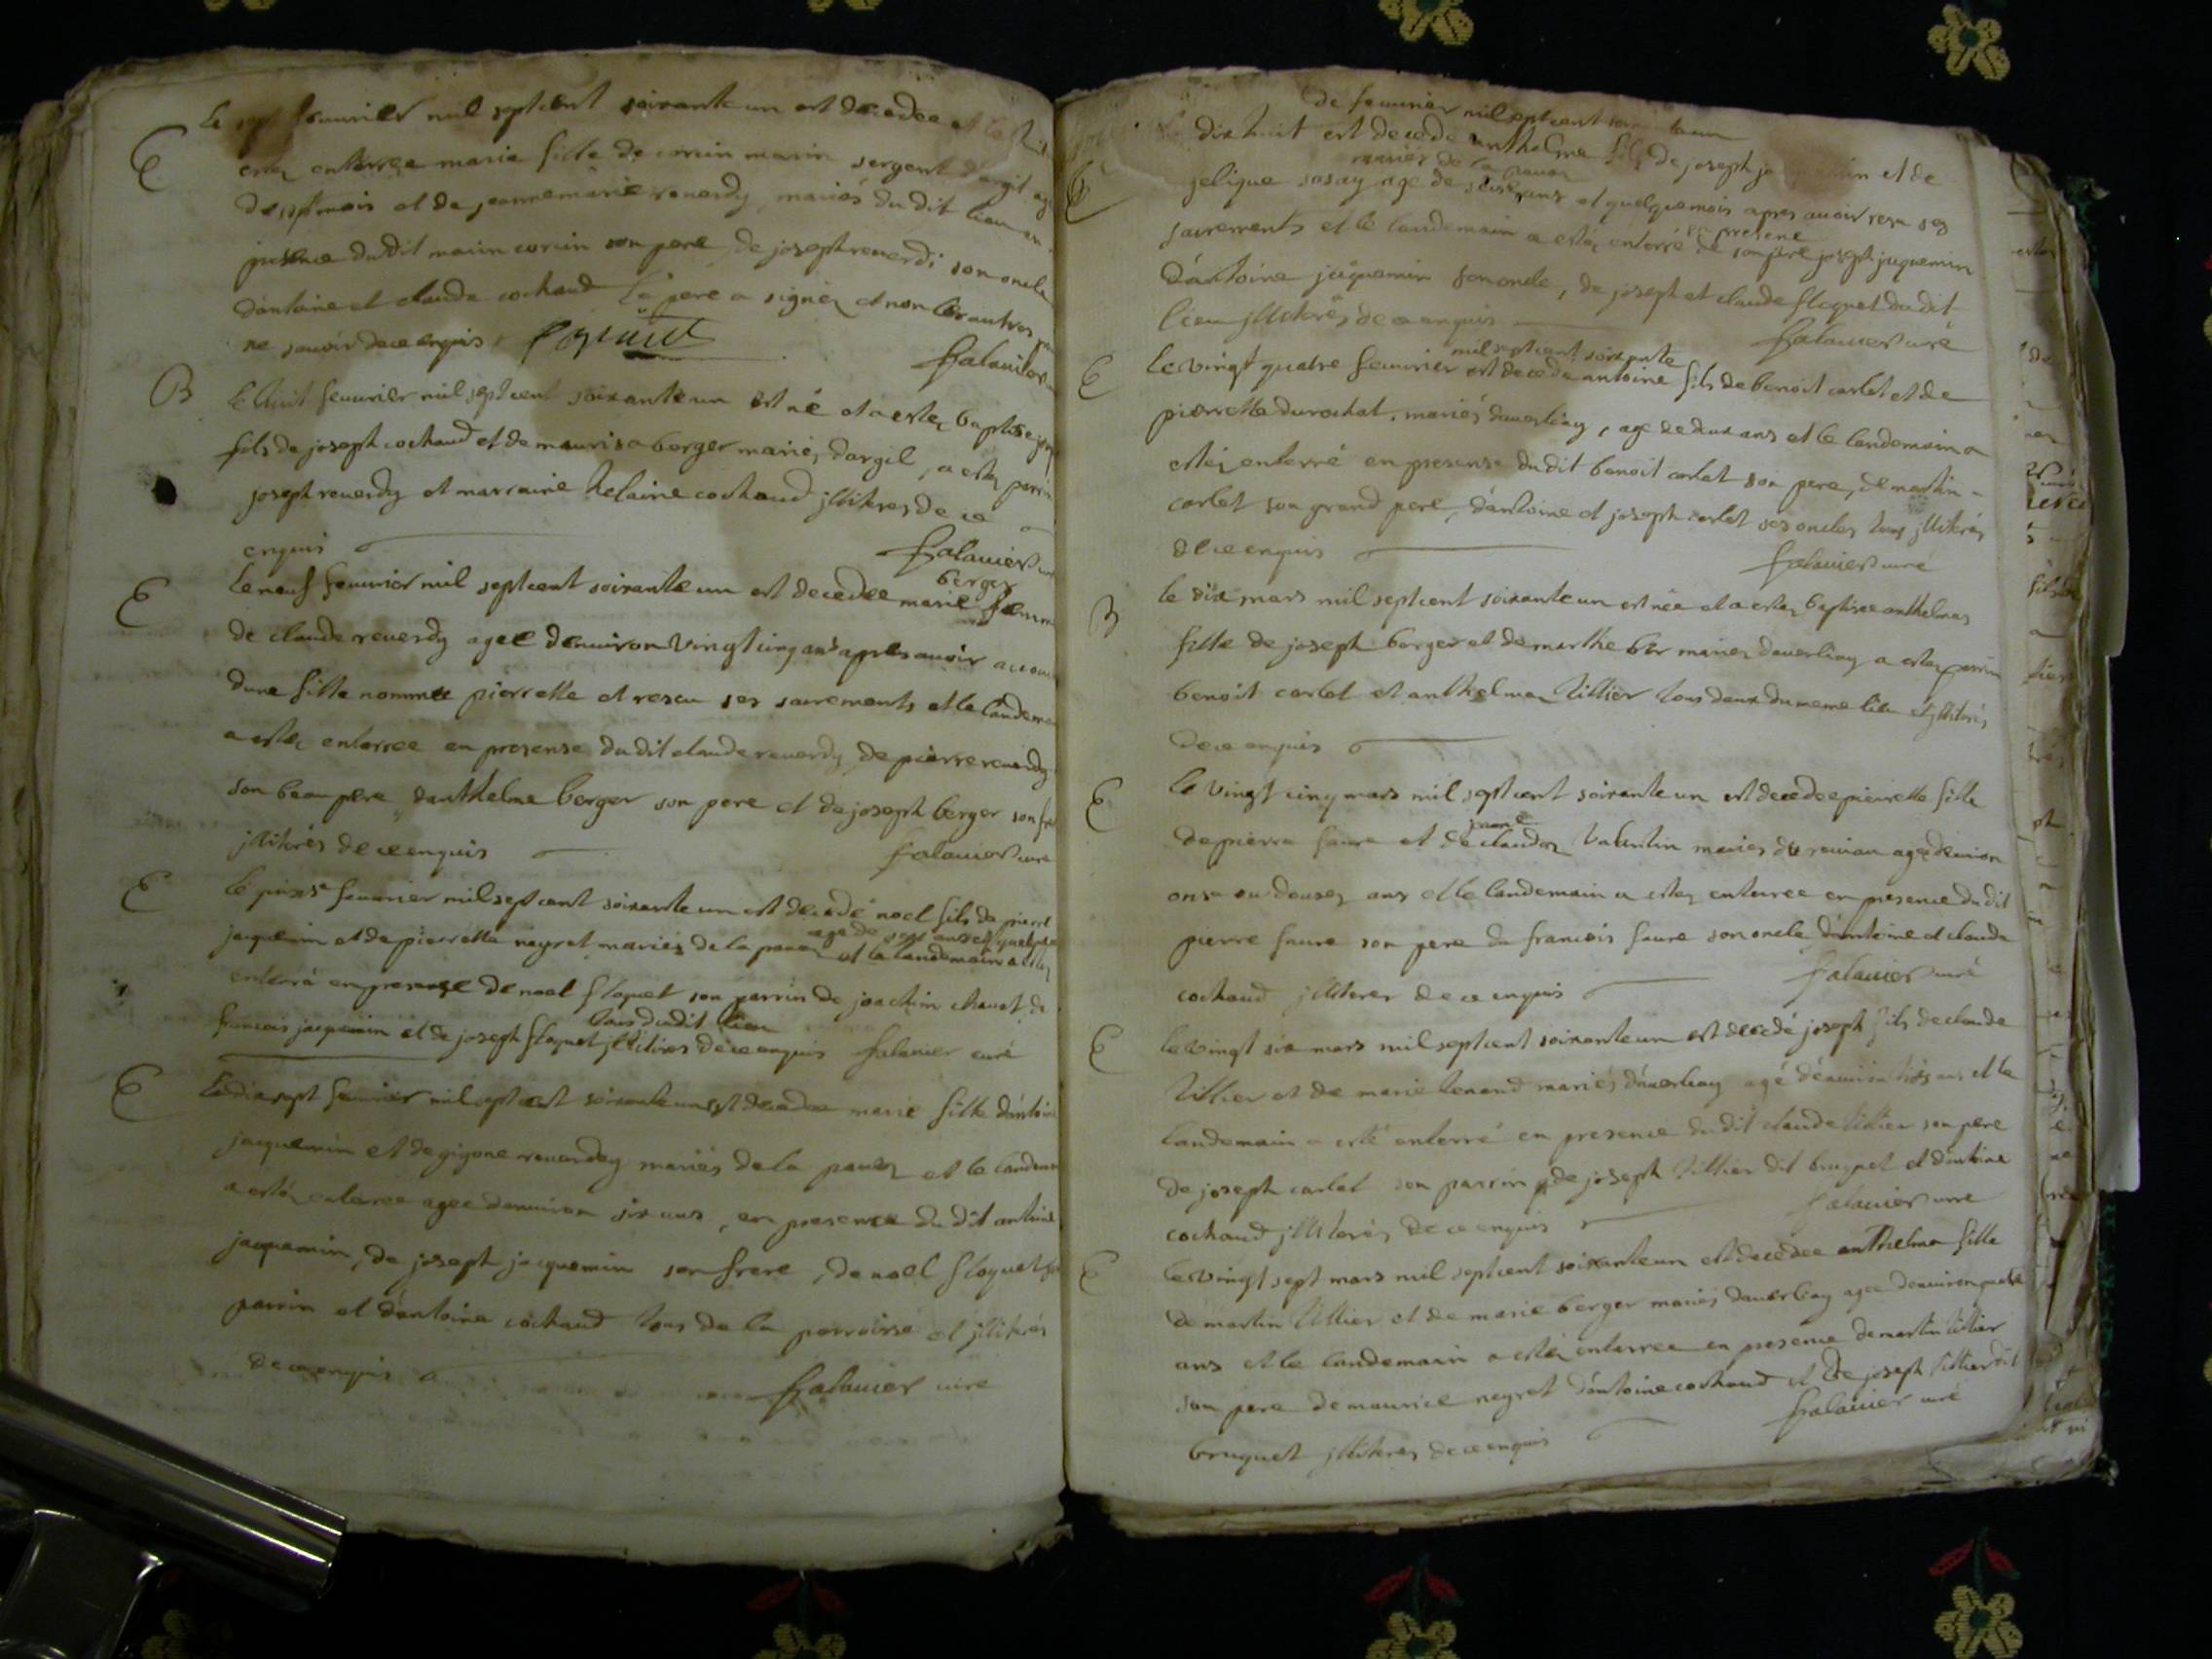 Le sept feuurier mil septcent soixante un est decedee et le huit
E
estez enterree marie fille de corcin marin sergent d'argit agee
de sept mois et de jeannemarie reuerdy, mariés du dit lieu en
presence du dit marin corcin son pere, de joseph reuerdi son oncle
d'antoine et claude cochaud le pere a signéz et non les autres pour
ne sauoir de ce enquis
falauier
B
le huit feuurier mil septcent soixante un est né et a estez baptise
fils de joseph cochaud et de maurisa berger mariez dargil, a estez parrin
joseph reuerdy et marraine helaine cochaud jlliteres de ce
enquis
falauier curé
E
le neuf feuurier mil septcent soixante un est decedee marie berger femme
de claude reuerdy agee denuiron vingt cinq ans apres auoir accou
dune fille nommee pierrette et reseu ses sacrements et le landema
a estez enterree en presense du dit claude reuerdy, de pierre reuerdy
son beau pere, danthelme berger son pere et de joseph berger son fre
jlliterés de ce enquis
falauier curé
E
le feuurier mil sept cent soixante un est decedé noel fils de pierre
jaquemin et de pierrette neyret mariés de la pauaz age de sept ans et quelque
et le landemain a estez
enterré en presense de noel floquet son parrin de joachim chauet de
francois jaquemin et de joseph floquet tous dudit lieu jlliterés de ce enquis falauier curé
E
Le dix sept feurier mil septcent soixante un est decedee marie fille d'antoine
jacquemin et de gigone reuerdey mariés de la pauaz et le landem
a estéz enterree agee denuiron six ans, en presence du dit antoine
jacquemin, de joseph jacquemin son frere, de noel floquet son
parrin et d'antoine cochaud tous de la parroisse et jlliterés
de ce enquis
falauier curé
de feuurier mil septcent soixante un
dixhuit est decede anthelme fils de joseph jaquemin et de
E
jelique sasay mariés de la pauaz age de ans et quelque mois apres auoir resu ses
sacrements et le landemain a estéz enterré en presene de son pere joseph jaquemin
d'antoine jaquemin son oncle, de joseph et claude floquet du dit
lieu jlliterés de ce enquis
falauier curé
E
le vingt quatre feuurier mil septcent soixante est decede antoine fils de benoit carlet et de
pierrette durochat, mariés dauerliay, age de deux ans et le landemain a
estéz enterré en presense du dit benoit carlet son pere, de martin
carlet son grand pere, d'antoine et joseph carlet ses oncles tous jlliterés
de ce enquis
falauier curé
B
le dix mars mil septcent soixante un est née et a estez baptisee anthelmaz
fille de joseph berger et de marthe mariez dauerliay a estez parrin
benoit carlet et anthelmaz tillier tous deux du meme lieu et jlliterés
de ce enquis
E
le vingt cinq mars mil septcent soixante un est decedee pierrette fille
de pierre faure et de claudaz valentin mariés de agée denuiron
onse ou dousez ans et le landemain a estez enterree en presence du dit
pierre faure son pere de francois faure son oncle d'antoine et claude
cochaud jlliterez de ce enquis
falauier curé
E
le vingt six mars mil septcent soixante un est decedé joseph fils de claude
tillier et de marie tenand mariés d'auerliay agé d'enuiron ans et le
landemain a esté enterré en presence du dit claude tillier son pere
de joseph carlet son parrin de joseph tillier dit bruquet et d'antoine
cochaud jlliteréz de ce enquis
falauier curé
E
le vingt sept mars mil septcent soixante un est decedee anthelma fille
de martin tillier et de marie berger mariés dauerliay agee denuiron quatre
ans et le landemain a estéz enterree en presence de martin tillier
son pere de maurice neyret d'antoine cochaud et de joseph tillier dit
bruquet jlliterez de ce enquis
falauier curé